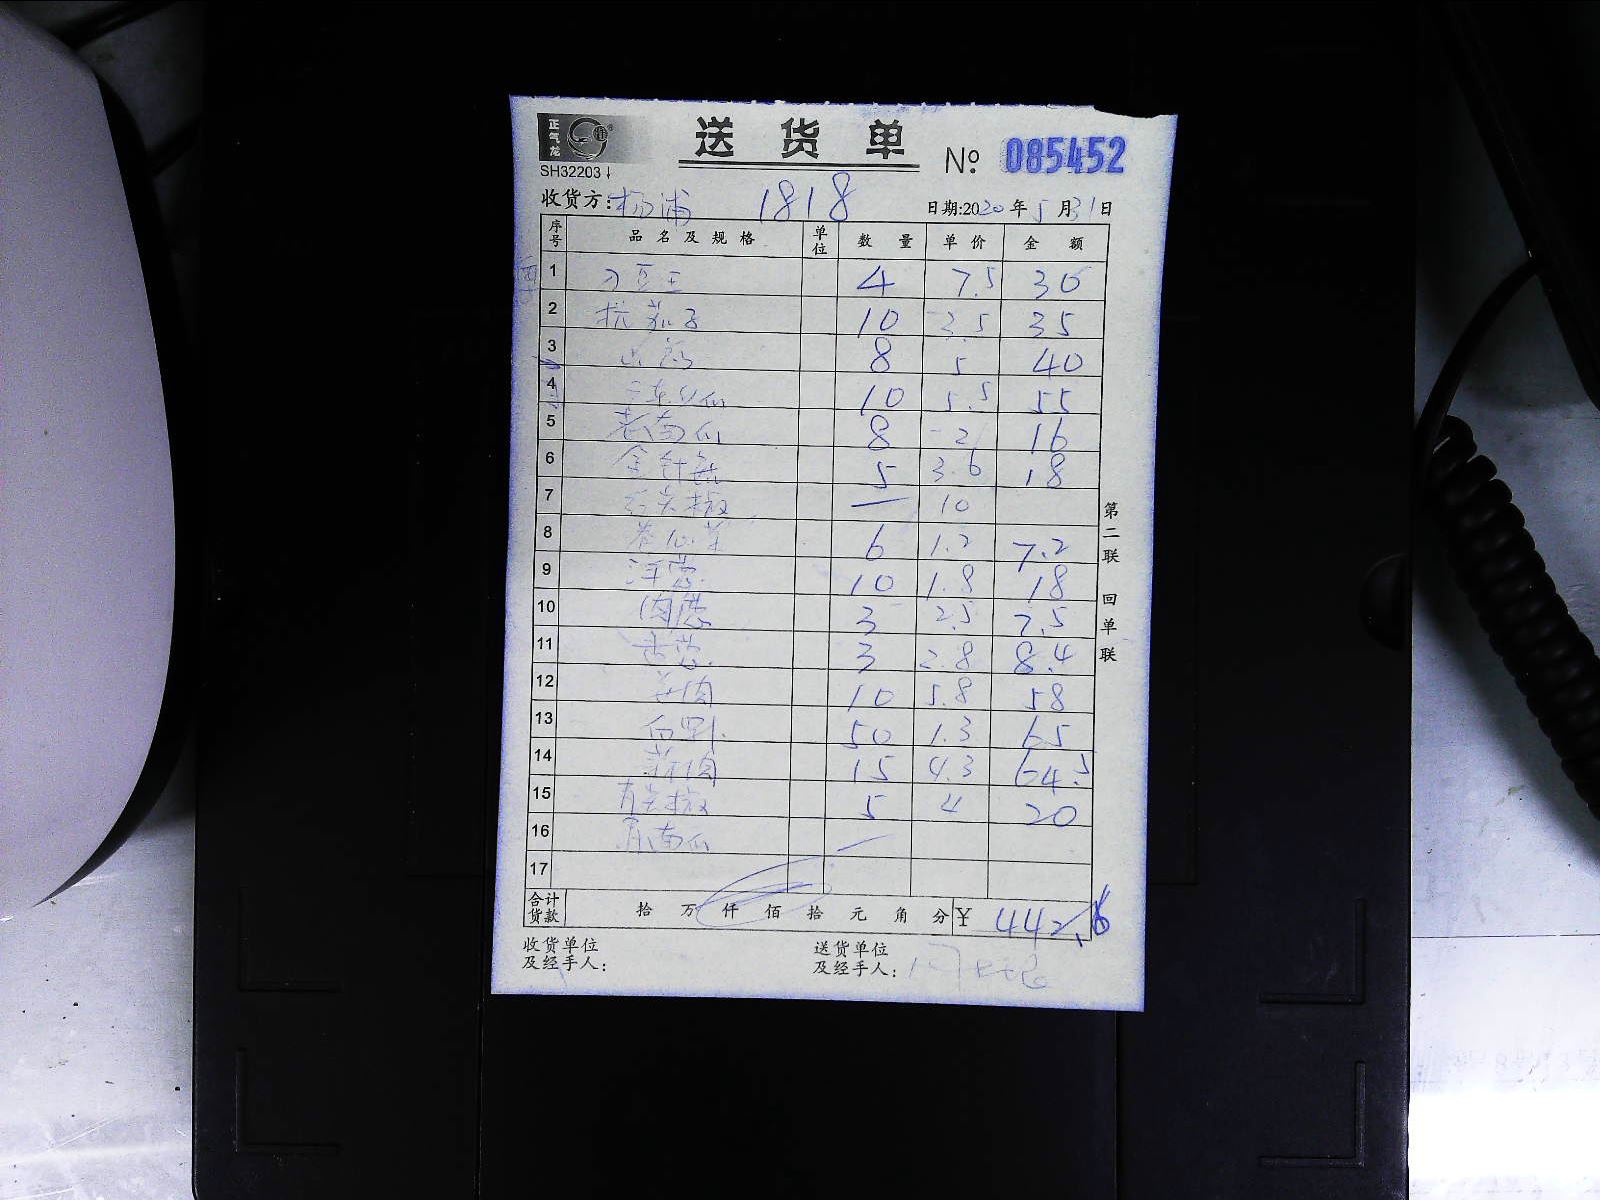 正气龙
送货单
SH32203
№ 085452
收货方: 杨浦 1818 日期:2020年5月31日
序号 品名及规格 单位 数量 单价 金额
1 刀豆王 4 7.5 30
2 杭茄子 10 3.5 35
3 山药 8 5 40
4 10 5.5 55
5 老南瓜 8 2 16
6 金针菇 5 3.6 18
7 红尖椒 — 10
8 卷心菜 6 1.2 7.2
9 洋葱 10 1.8 18
10 肉葱 3 2.5 7.5
11 3 2.8 8.4
12 10 5.8 58
13 50 1.3 65
14 15 4.3 64.5
15 青尖椒 5 4 20
16 南瓜 —
17
合计货款 拾 万 仟 佰 拾 元 角 分 ¥ 442.6
收货单位及经手人:
送货单位及经手人:
第二联 回单联